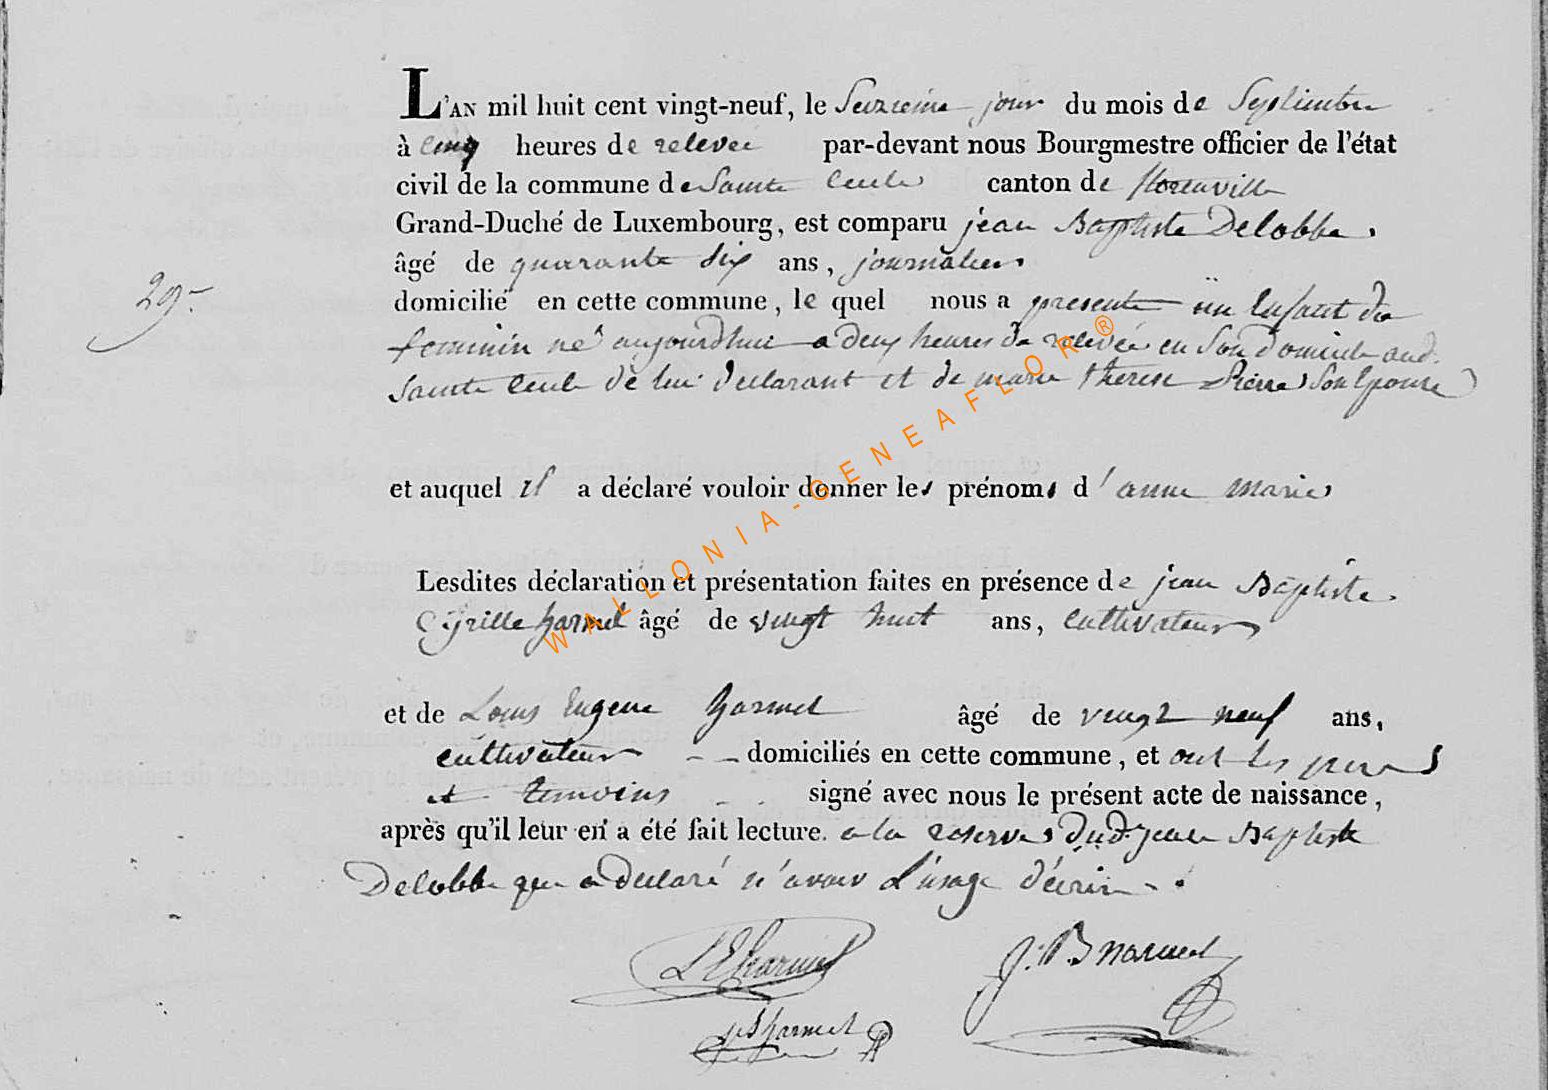 L'AN mil huit cent vingt-neuf, le Seizieme jour du mois de Septembre
à cinq heures de relevée par-devant nous Bourgmestre officier de l'état
civil de la commune de Sainte Cecile canton de florenville
Grand-Duché de Luxembourg, est comparu jean Baptiste Delobbe,
âgé de quarante six ans, journalier
domicilié en cette commune, le quel nous a presenté un Enfant du
29.
feminin né aujourdhui a deux heures de relevée en Son domicile aud.
Sainte Cecile de lui declarant et de marie therese Pierre Son Epouse
et auquel il a déclaré vouloir donner les prénoms d'anne marie
Lesdites déclaration et présentation faites en présence de jean Baptiste
Cyrille harmel âgé de vingt huit ans, cultivateur
et de Louis Eugene harmel âgé de vingt neuf ans,
cultivateur - - domiciliés en cette commune, et ont les
et temoins - - signé avec nous le présent acte de naissance,
après qu'il leur en a été fait lecture. a la reserve dud. jean Baptiste
Delobbe que a declaré n'avoir L'usage d'écrire - .
L E harmel J. B harmel
harmel
WALLONIA-GENEAFLOR ®